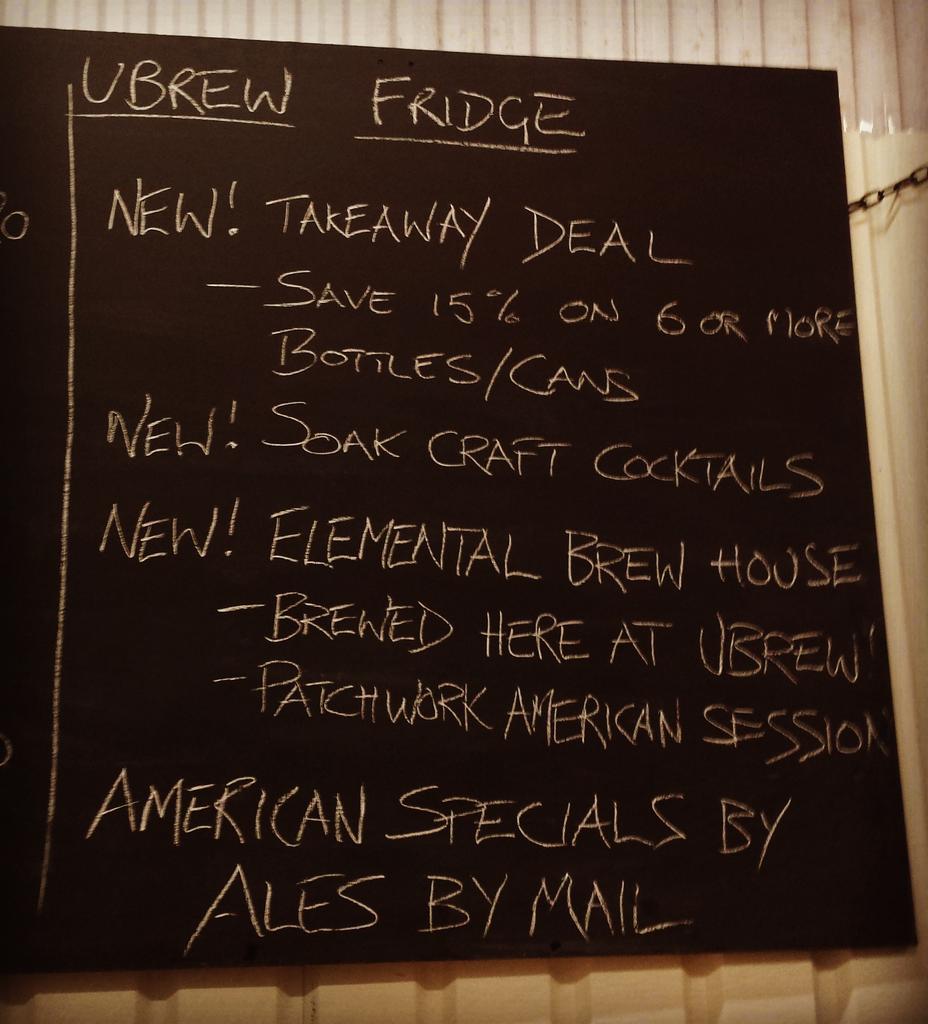 UBREW FRIDGE
NEW! TAKEAWAY DEAL
- SAVE 15% ON 6 OR MORE
BOTTLES/CANS
NEW! SOAK CRAFT COCKTAILS
NEW! ELEMENTAL BREW HOUSE
- BREWED HERE AT UBREW!
- PATCHWORK AMERICAN SESSION
AMERICAN SPECIALS BY
ALES BY MAIL